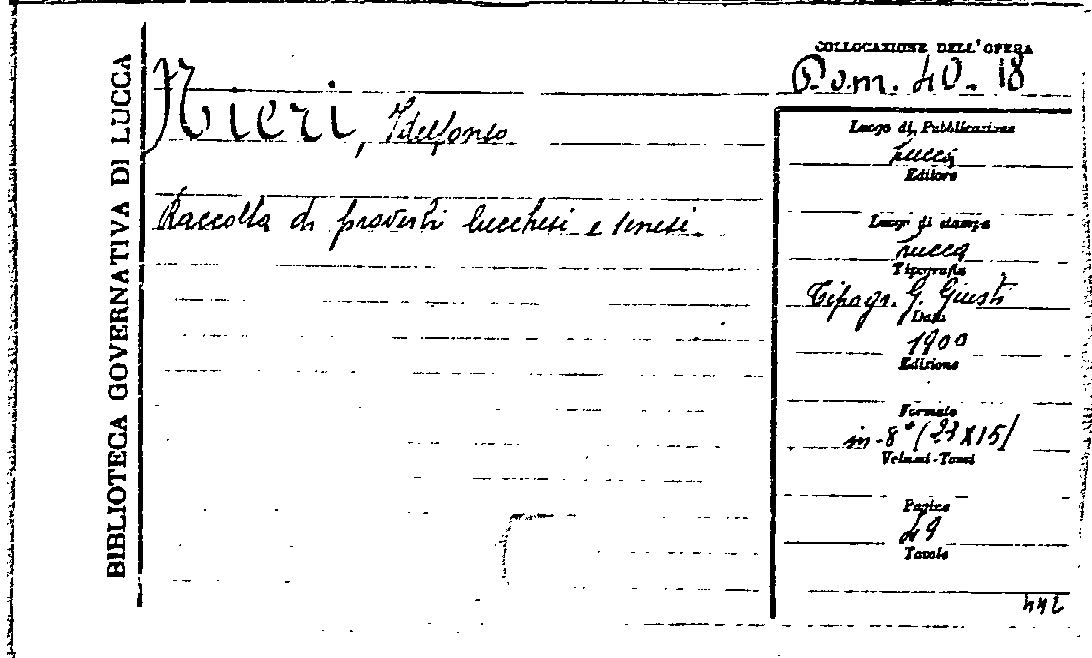 BIBLIOTECA GOVERNATIVA DI LUCCA
Nieri, Idelfonso
Raccolta di proverbi lucchesi e senesi.
COLLOCAZIONE DELL'OPERA
40. 18
Luogo di Pubblicazione
Lucca
Editore
Luogo di stampa
Lucca
Tipografia
Tipogr. G. Giusti
Data
1900
Edizione
Formato
in-8° (23X15)
Volumi-Tomi
Pagine
49
Tavole